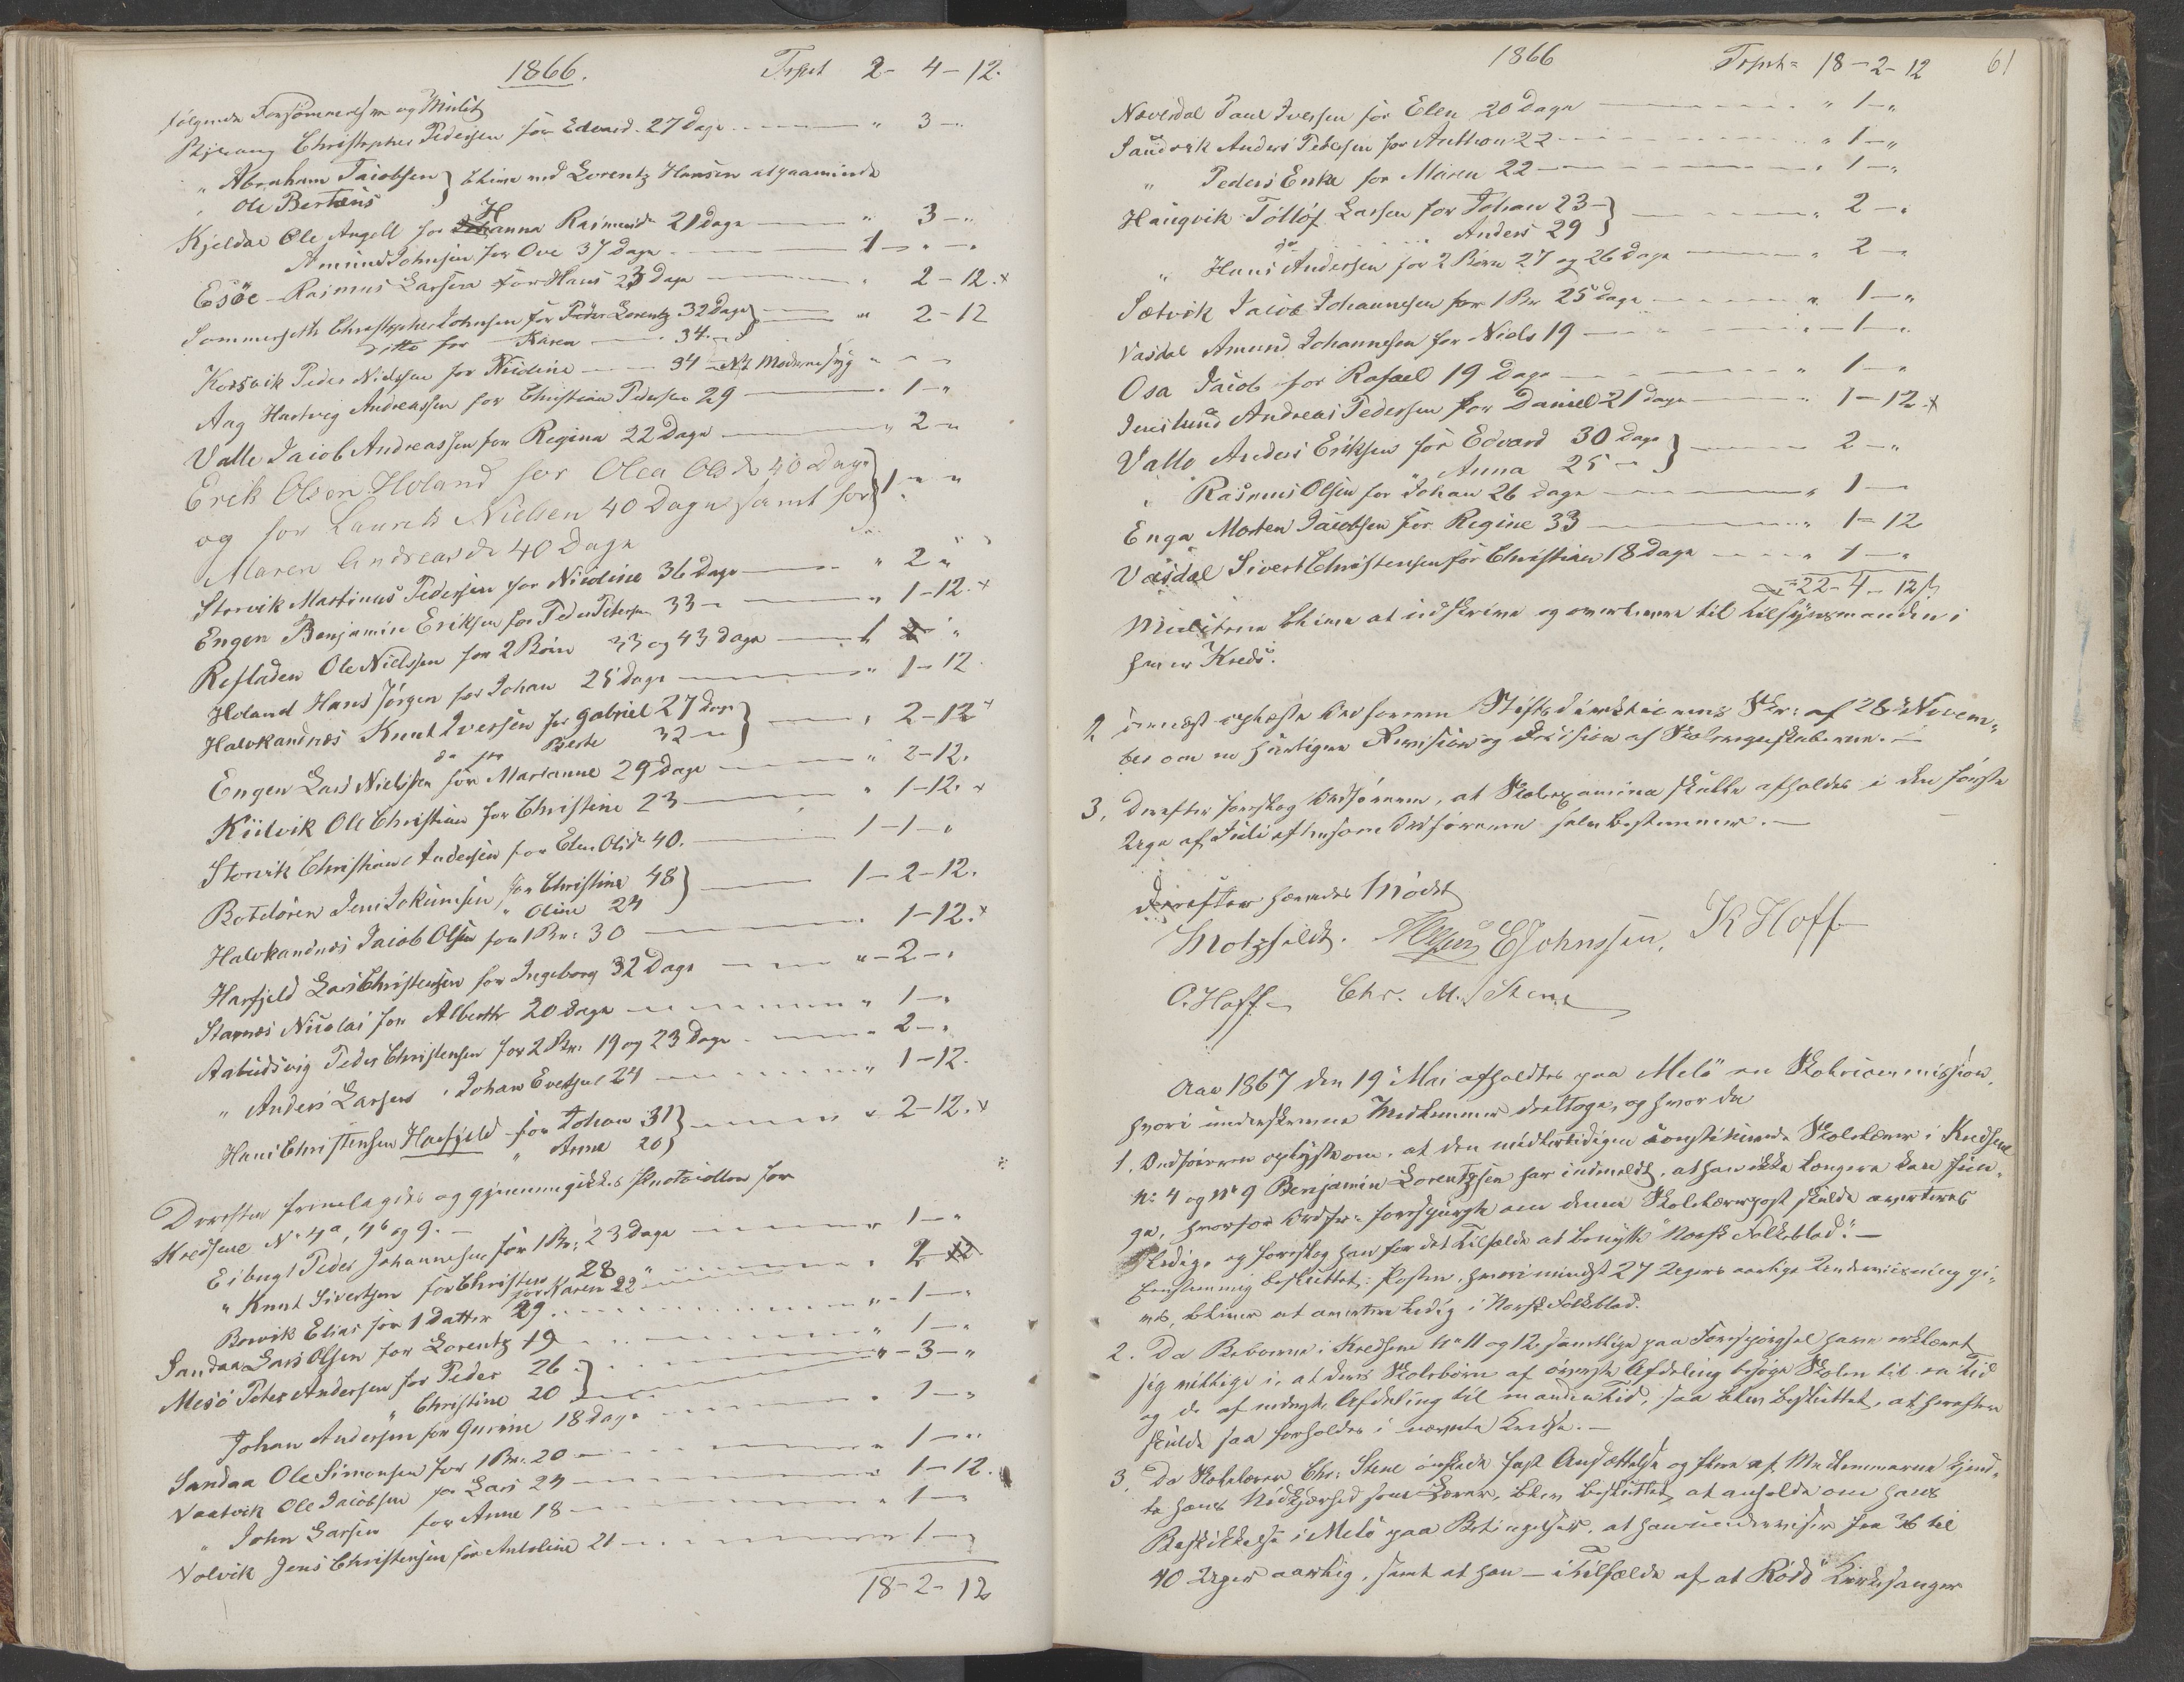 1866. Trpst 2- 4-12.
følgende Forsømmelser og Mulct
Christopher Pedersen for Edvard 27 Dage " 3 - "
" Abraham Jacobsen } bliver ved Lorentz Hansen
" Ole Bertæus
Kjeldal Ole Angell for Hanna Rasmusd. 21 Dage " 3 - "
Amund Johnsen for Ove 37 Dage 1 - " - "
Esøe Rasmus Larsen for Hans 23 Dage " 2 - 12. x
Sommerseth Christopher Johnsen for Peder Lorentz 32 Dage } " 2-12
ditto for Karen 34 "
Korsvik Peder Nielsen for Nicoline 34 - Nb Moderen syg " - "
Aag Hartvig Andreassen for Christian Pedersen 29 " 1 - "
Valle Jacob Andreassen for Regina 22 Dage " 2 - "
Erik Olsen Holand for Olea Olsd 40 Dage } 1 - " - "
og for Laurits Nielsen 40 Dage samt for
Maren Andreasd 40 Dage
Storvik Martinus Pedersen for Nicoline 36 Dage " 2 "
Engen Benjamin Eriksen for Peder Petersen 33 - " 1-12. x
Refladen Ole Nielsen for 2 Børn 33 og 43 Dage 1 2 "
Holand Hans Jørgen for Johan 25 Dage " 1-12
Halvkandnæs Knut Iversen for Gabriel 27 Dage } " 2-12 x
do for Berte 32 - "
Engen Lars Nielsen for Marianne 29 Dage " 2-12.
Kiilvik Ole Christian for Christine 23 " 1-12. x
Storvik Christian Andersen for Elen Olisd 40. 1 - 1 - "
Botoloren Jens Jokumsen for Christine 48 } 1-2-12.
" Oline 24
Halvkandnæs Jacob Olsen for 1 Bn: 30 " 1-12. x
Harfjeld Lars Christensen for Ingeborg 32 Dage " - 2 - "
Stavnæs Nicolai for Albert 20 Dage " 1 - "
Aabudsvig Peder Christensen for 2 Bn: 19 og 23 Dage " 2 - "
" Anders Larsen " Johan Evetsen 24 " 1-12.
Hans Christensen Harfjeld for Johan 31 } " 2-12. x
" Anne 20
Derefter fremlagdes og gjennemgikkes Skoleprotocollen for
Kredsene No 4a, 4b og 9. -
Eibugt Peder Johannesen for 1 Bn: 23 Dage " 1 - "
" Knut Sivertsen for Christen 28 " 2 12
for Karen 22
Borvik Elias for 1 Datter 29 " - 1 - "
Sandaa Lars Olsen for Lorentz 19 " 1 - "
Mesø Peter Andersen for Peder 26 } " - 3 - "
" Christine 20
Johan Andersen for Gurine 18 Dage " 1 - "
Sandaa Ole Simonsen for 1 Bn: 20 " 1 - "
Vaatvik Ole Jacobsen for Lars 24 " 1-12.
" John Larsen for Anne 18 " 1 - "
Volvik Jens Christensen for Antoline 21 " 1 - "
18-2-12
1866 Trpst= 18-2-12 61
Næverdal Paul Iversen for Elen 20 Dage " 1 - "
Sandvik Anders Pedersen for Anthon 22 " 1 - "
" Peders Enke for Maren 22 " 1 - "
Haugvik Tolløf Larsen for Johan 23 } " 2 - "
do Anders 29
" Hans Andersen for 2 Børn 27 og 26 Dage " 2 - "
Sætvik Jacob Johannesen for 1 Bn 25 Dage " 1 - "
Vasdal Amund Johannesen for Niels 19 " - 1 - "
Osa Jacob for Rafael 19 Dage " 1 - "
Jenslund Andreas Pedersen for Daniel 21 Dage " 1-12. x
Valle Anders Eriksen for Edvard 30 Dage } 2 - "
" Anna 25 -
" Rasmus Olsen for Johan 26 Dage " 1 -
Enga Morten Jacobsen for Regine 33 " 1-12
Vasdal Sivert Christensen for Christian 18 Dage " 1 - "
= 22-4-12 s
Mulcterne bliver at indskrive og oversende til Tilsynsmanden i
hver Kreds.
2, dernæst oplæste Ordføreren Stiftsdirectionens Skr: af 28 Novem-
ber om en hurtigere Revision og Decision af Skoleregnskaberne. -
3, Derefter foreslog Ordføreren, at Skoleexamina skulle afholdes i den første
Uge af Juli eftersom Ordføreren selv bestemmer. -
Derefter hævedes Mødet
Motzfeldt. EJohnssen. K Hoff
O. Hoff Chr. M. Stene
Aar 1867 den 19 Mai afholdtes paa Melø en Skolecommission,
hvori underskrevne Medlemmer deeltoge, og hvor da
1. Ordføreren oplyste om, at den midlertidigen constituerede Skolelærer i Kredsene
No 4 og No 9 Benjamin Lorentzsen har indmeldt, at han ikke længere kan fun-
gere, hvorfor Ordfr: forespurgte om denne Skolelærerpost skulde averteres
ledig, og foreslog han for det Tilfælde at benytte "Norsk Folkeblad". -
Eenstemmig besluttet: Posten, hvori mindst 27 Ugers aarlige Underviisning gi-
ves, bliver at avertere ledig i Norsk Folkeblad.
2. Da Beboerne i Kredsene No 11 og 12, samtlige paa Forespørgsel have erklæret
sig villige i, at deres Skolebørn af øverste Afdeling besøge Skolen til en Tid
og de af nederste Afdeling til en anden Tid, saa blev besluttet, at herefter
skulde saa forholdes i nævnte Kredse. -
3, Da Skolelærer Chr: Stene ønskede fast Ansættelse og flere af Medlemmerne kjend-
te hans Nidkjærhed som Lærer, blev besluttet, at anholde om hans
Beskikkelse i Melø paa Betingelse, at han underviser fra 36 til
40 Uger aarlig, samt at han - i Tilfælde af at Rødø Kirkesanger